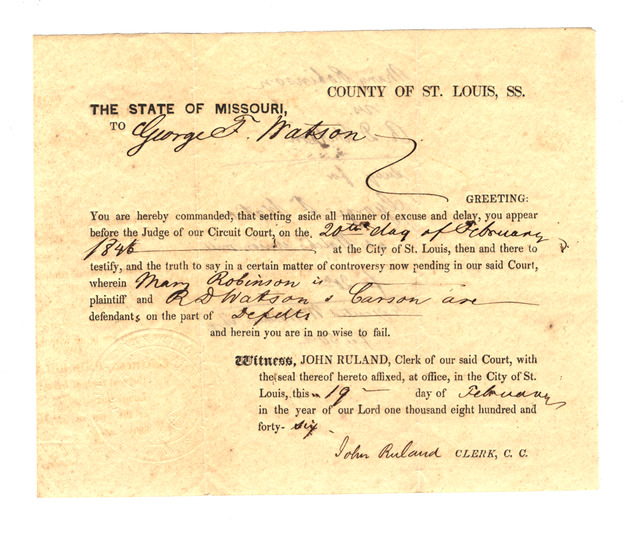 COUNTY OF ST. LOUIS, SS.
THE STATE OF MISSOURI,
TO George F. Watson
GREETING:
You are hereby commanded, that setting aside all manner of excuse and delay, you appear
before the Judge of our Circuit Court, on the 20th day of February
1846 at the City of St. Louis, then and there to
testify, and the truth to say in a certain matter of controversy now pending in our said Court,
wherein Mary Robinson is
plaintiff and R D Watson & Carson are
defendants on the part of Defclts
and herein you are in no wise to fail.
Witness, JOHN RULAND, Clerk of our said Court, with
the seal thereof hereto affixed, at office, in the City of St.
Louis, this 19 day of February
in the year of our Lord one thousand eight hundred and
forty-six
John Ruland CLERK, C. C.